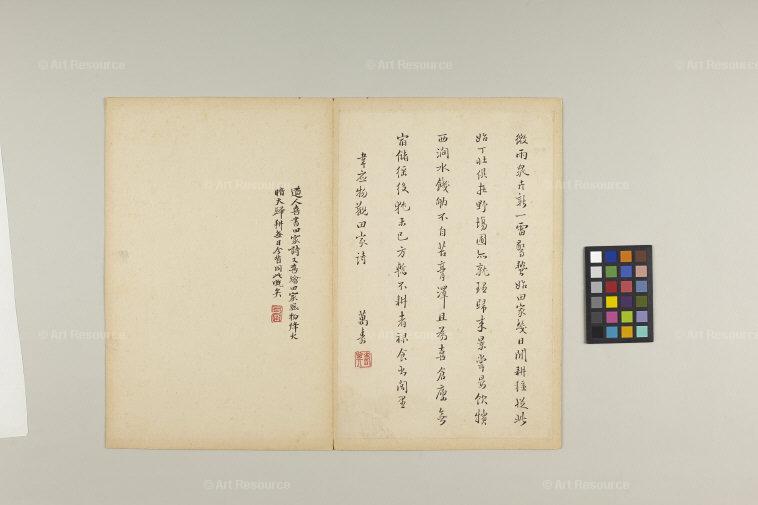 微雨衆卉新一雷驚蟄始田家幾日閒耕種從此
始丁壯俱在野場圃亦就理歸來景常晏飲犢
西澗水饑劬不自苦膏澤且為喜倉廩無
宿儲徭役猶未已方慙不耕者祿食出閭里
韋应物觀田家詩 萬壽
道人喜書田家詩又喜繪田家風物
天歸耕每日今皆同此嘅矣
© Art Resource
© Art Resource
© Art Resource
© Art Resource
© Art Resource
© Art Resource
© Art Resource
© Art Resource
© Art Resource
© Art Resource
© Art Resource